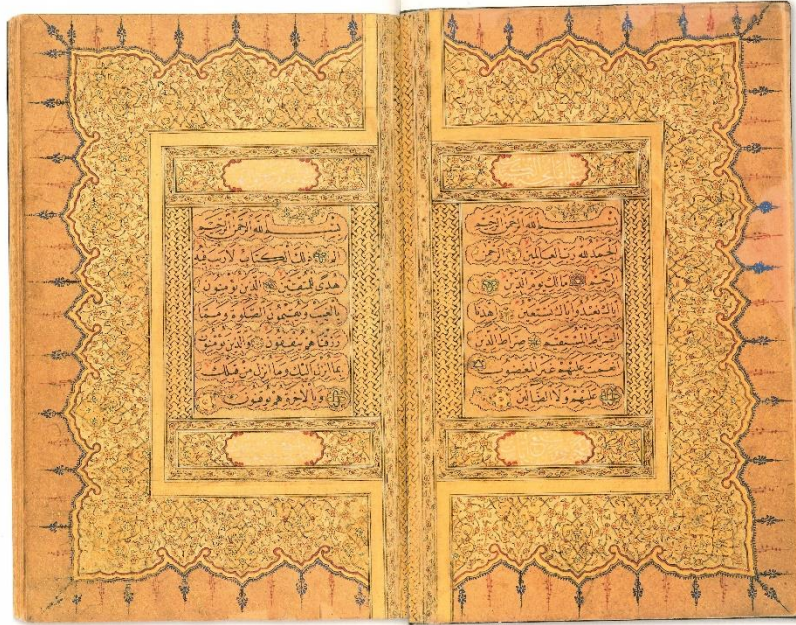 فاتحة الكتاب
بسم الله الرحمن الرحيم
الحمد لله رب العالمين الرحمن
الرحيم مالك يوم الدين
اياك نعبد واياك نستعين اهدنا
الصراط المستقيم صراط الذين
انعمت عليهم غير المغضوب
عليهم ولا الضالين
بسم الله الرحمن الرحيم
الم ذلك الكتاب لا ريب فيه
هدى للمتقين الذين يؤمنون
بالغيب ويقيمون الصلوة ومما
رزقناهم ينفقون والذين يؤمنون
بما انزل اليك وما انزل من قبلك
وبالاخرة هم يوقنون